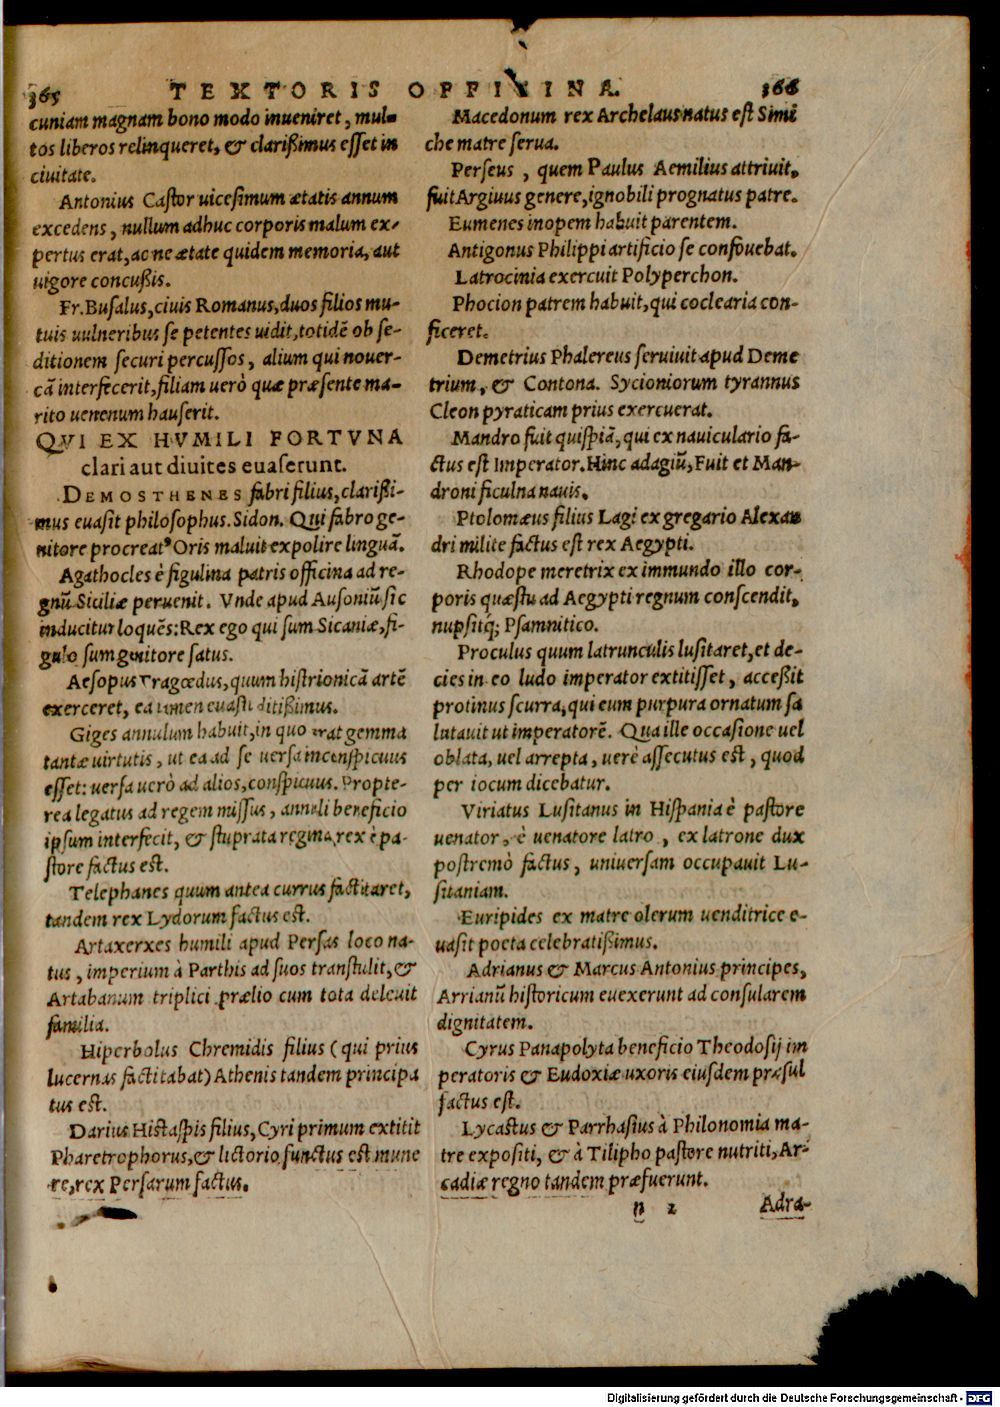 365 TEXTORIS OFFICINAE. 366
cuniam magnam bono modo inueniret, mul-
tos liberos relinqueret, & clarißimus esset in
ciuitate.
Antonius Castor uicesimum ætatis annum
excedens, nullum adhuc corporis malum ex-
pertus erat, ac ne ætate quidem memoria, aut
uigore concußis.
Fr. Busalus, ciuis Romanus, duos filios mu-
tuis uulneribus se petentes uidit, totidẽ ob se-
ditionem securi percussos, alium qui nouer-
cã interfecerit, filiam uerò quæ præsente ma-
rito uenenum hauserit.
QVI EX HVMILI FORTVNA
clari aut diuites euaserunt.
DEMOSTHENES fabri filius, clarißi-
mus euasit philosophus. Sidon. Qui fabro ge-
nitore procreatꝰ Oris maluit expolire linguã.
Agathocles è figulina patris officina ad re-
gnũ Siciliæ peruenit. Vnde apud Ausoniũ sic
inducitur loquẽs: Rex ego qui sum Sicaniæ, fi-
gulo sum genitore satus.
Aesopus Tragœdus, quum histrionicã artẽ
exerceret, ea tamen euasit ditißimus.
Giges annulum habuit, in quo erat gemma
tantæ uirtutis, ut ea ad se uersa inconspicuus
esset: uersa uerò ad alios, conspicuus. Propte-
rea legatus ad regem missus, annuli beneficio
ipsum interfecit, & stuprata regina, rex è pa-
store factus est.
Telephanes quum antea currus factitaret,
tandem rex Lydorum factus est.
Artaxerxes humili apud Persas loco na-
tus, imperium à Parthis ad suos transtulit, &
Artabanum triplici prælio cum tota deleuit
familia.
Hiperbolus Chremidis filius (qui prius
lucernas factitabat) Athenis tandem principa
tus est.
Darius Histaspis filius, Cyri primum extitit
Pharetrophorus, & lictorio functus est mune
re, rex Persarum factus.
Macedonum rex Archelaus natus est Simi
che matre serua.
Perseus, quem Paulus Aemilius attriuit,
fuit Argiuus genere, ignobili prognatus patre.
Eumenes inopem habuit parentem.
Antigonus Philippi artificio se confouebat.
Latrocinia exercuit Polyperchon.
Phocion patrem habuit, qui coclearia con-
ficeret.
Demetrius Phalereus seruiuit apud Deme
trium, & Contona. Sycioniorum tyrannus
Cleon pyraticam prius exercuerat.
Mandro fuit quispiã, qui ex nauiculario fa-
ctus est Imperator. Hinc adagiũ, Fuit et Man-
droni ficulna nauis.
Ptolomæus filius Lagi ex gregario Alexan
dri milite factus est rex Aegypti.
Rhodope meretrix ex immundo illo cor-
poris quæstu ad Aegypti regnum conscendit,
nupsitq́; Psamnitico.
Proculus quum latrunculis lusitaret, et de-
cies in eo ludo imperator extitisset, accessit
protinus scurra, qui eum purpura ornatum sa
lutauit ut imperatorẽ. Qua ille occasione uel
oblata, uel arrepta, uerè assecutus est, quod
per iocum dicebatur.
Viriatus Lusitanus in Hispania è pastore
uenator, è uenatore latro, ex latrone dux
postremò factus, uniuersam occupauit Lu-
sitaniam.
Euripides ex matre olerum uenditrice e-
uasit poeta celebratißimus.
Adrianus & Marcus Antonius principes,
Arrianũ historicum euexerunt ad consularem
dignitatem.
Cyrus Panapolyta beneficio Theodosij im
peratoris & Eudoxiæ uxoris eiusdem præsul
factus est.
Lycastus & Parrhasius à Philonomia ma-
tre expositi, & à Tilipho pastore nutriti, Ar-
cadiæ regno tandem præfuerunt.
n 2 Adra-
Digitalisierung gefördert durch die Deutsche Forschungsgemeinschaft - DFG